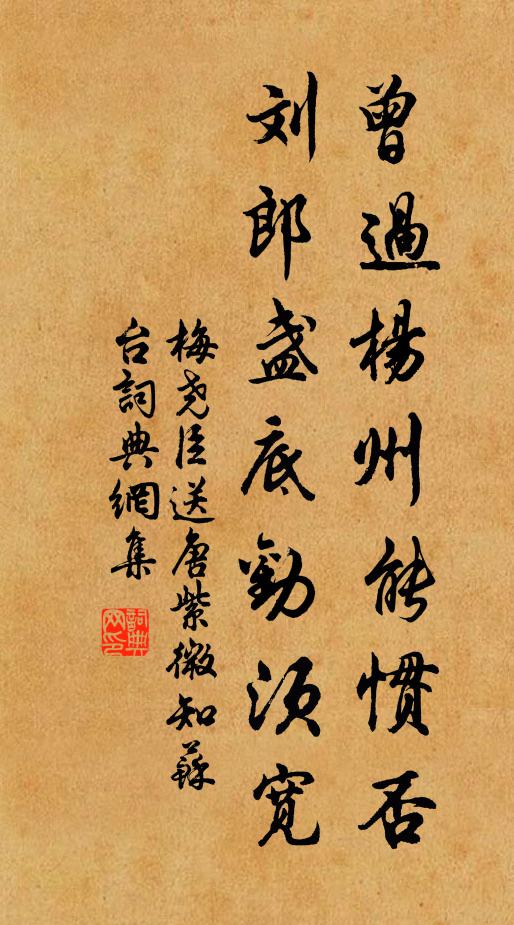 曾過楊州能慣否
刘郎盞底勸須寬
梅尧臣送唐紫微知蘇
台詞典網集
詞典网印